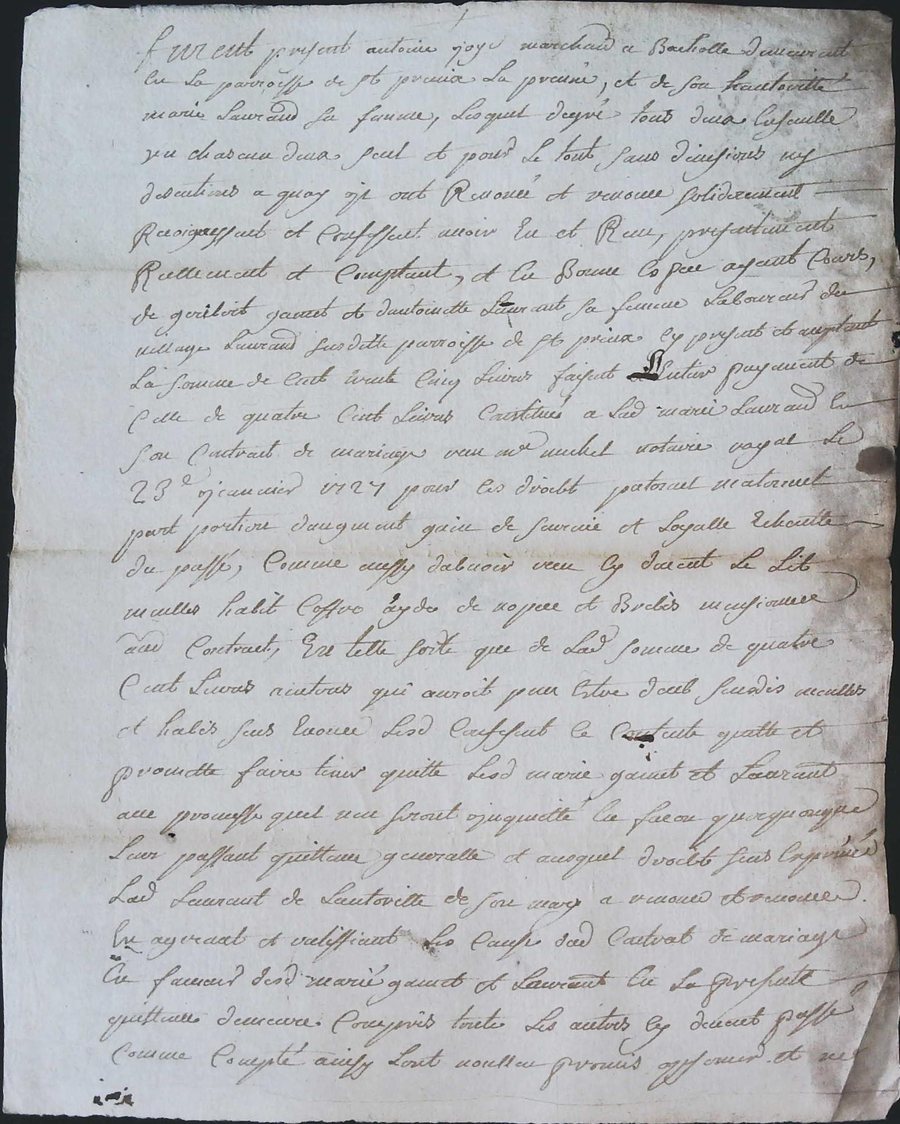 furent present antoine joye marchand a Bacholle demeurant
en La parroisse de st preuix La preuine, et de son hautoritté
marie Laurand sa famme, Lesquel degré tous deux ensemble
un chascun deux seul et pour Le tout sans division ny
discutions a quoy ils ont Renoncé et renonce solidairement
Reconnoissent et Confessent avoir Eu et Reeu, presentement
Reellement et Comptant, et En Bonne Espece ayant Cours,
de gamet et dantoinette Laurant sa femme Laboureur du
village Laurand susditte parroisse de st preuix Cy present et aceptant
La somme de Cent trente Cinq Livres faisant Lentier payement de
Celle de quatre Cent Livres Constitué a Lad marie Laurand En
son Contrat de mariage reeu me michel notaire royal Le
23e janvier 1727 pour ses droebt paternel maternel
part portion daugment gain de survie et Loyalle Echeutte
du passé, Comme aussy dabvoir reeu Cy devent Le Lit
meubles habit Coffre et Brebis mensionnee
aud Contract, En telle sorte que de Lad somme de quatre
Cent Livres qui auroit peu Estre deub susdis meubles
et habis sus Enoncé Lesd Confessent Le Contente quitte et
promette faire tenir quitte Lesd marié gamet et Laurant
ave promesse quel nen seront inquietté En facon quelquonque
Leur passant quittance generalle et ausquel droebt sus Exprimés
Lad Laurant de Lautoritte de son mary a renoncé et renonce.
En agreant et ratiffiant Les Clause dud Contrat de mariage
En faveur desd marié gamet et Laurant En La presente
quittance demeure Compris toute Les autres Cy devent passé
Comme Compté ainsy Lont voulleu promis observer et ne